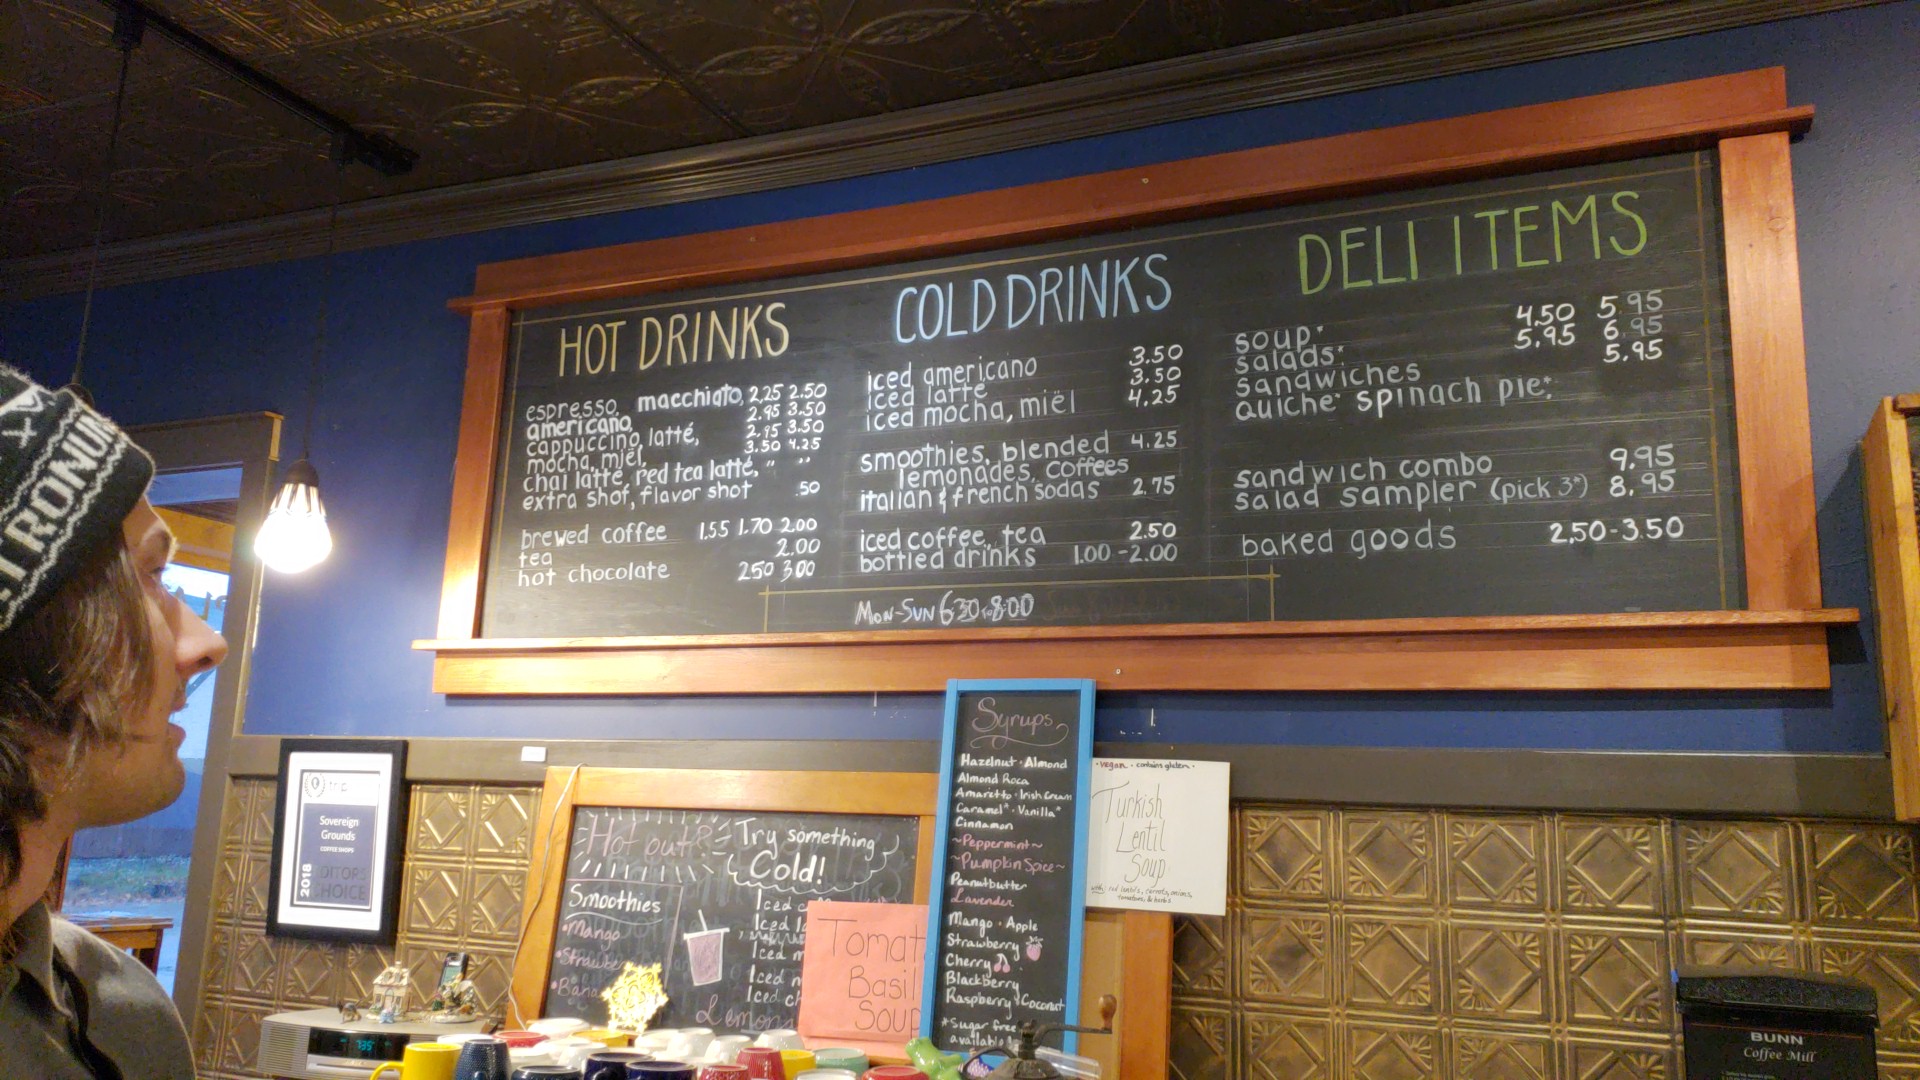 HOT DRINKS
espresso, macchiato, 2.25 2.50
americano, 2.95 3.50
cappuccino, latté, 2.95 3.50
mocha, miel, 3.50 4.25
chai latte, red tea latte, " "
extra shot, flavor shot .50
brewed coffee 1.55 1.70 2.00
tea 2.00
hot chocolate 2.50 3.00
COLD DRINKS
iced americano 3.50
iced latte 3.50
iced mocha, miël 4.25
smoothies, blended 4.25
lemonades, coffees
italian & french sodas 2.75
iced coffee, tea 2.50
bottled drinks 1.00-2.00
DELI ITEMS
soup* 4.50 5.95
salads* 5.95 6.95
sandwiches 5.95
quiche* spinach pie*
sandwich combo 9.95
salad sampler (pick 3*) 8.95
baked goods 2.50-3.50
MON-SUN 6:30 to 8:00
TRONUM
trip
Sovereign
Grounds
COFFEE SHOPS
2018
EDITORS
CHOICE
Hot out?
Try something
Cold!
Smoothies
•Mango
•Strawbe
•Bana
Iced c
Iced la
Iced m
Iced n
Iced ch
Lemon
Tomat
Basil
Soup
Syrups
Hazelnut · Almond
Almond Roca
Amaretto · Irish Cream
Caramel* · Vanilla*
Cinnamon
~Peppermint~
~Pumpkin Spice~
Peanutbutter
Lavender
Mango · Apple
Strawberry
Cherry
Blackberry
Raspberry · Coconut
*Sugar free
available
·vegan· contains gluten·
Turkish
Lentil
Soup
with: red lentils, carrots, onions,
tomatoes & herbs
7:35
BUNN
Coffee Mill